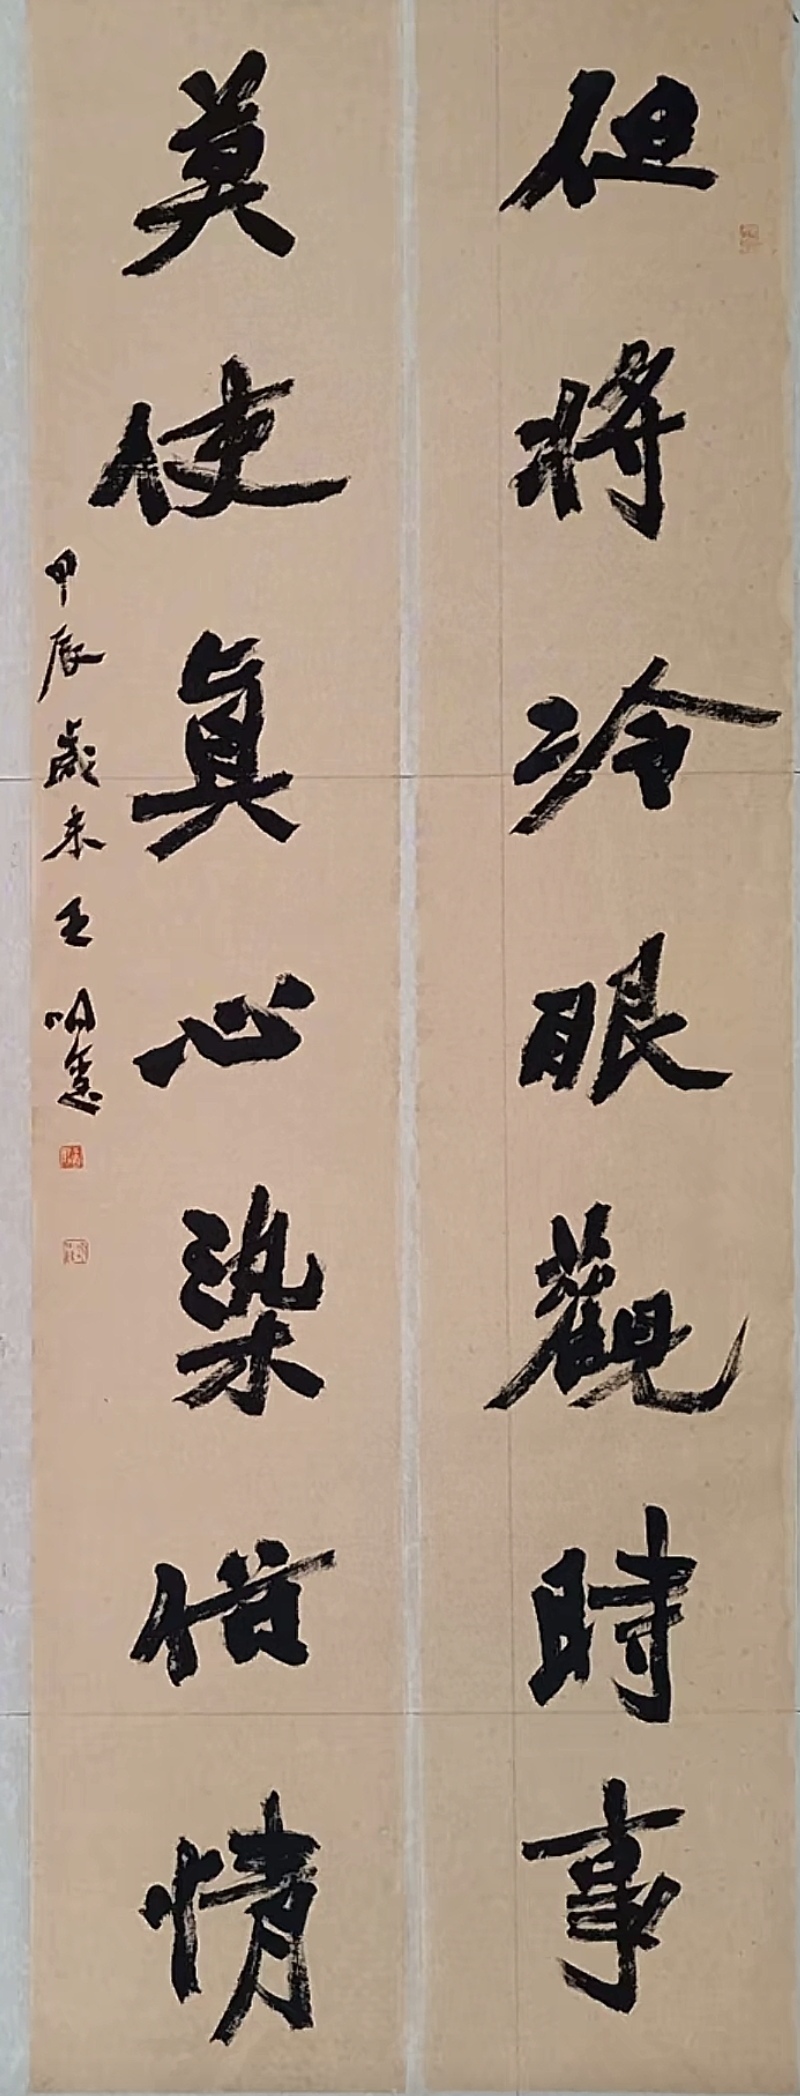 但將冷眼觀時事
莫使眞心染俗情
甲辰歲末王明